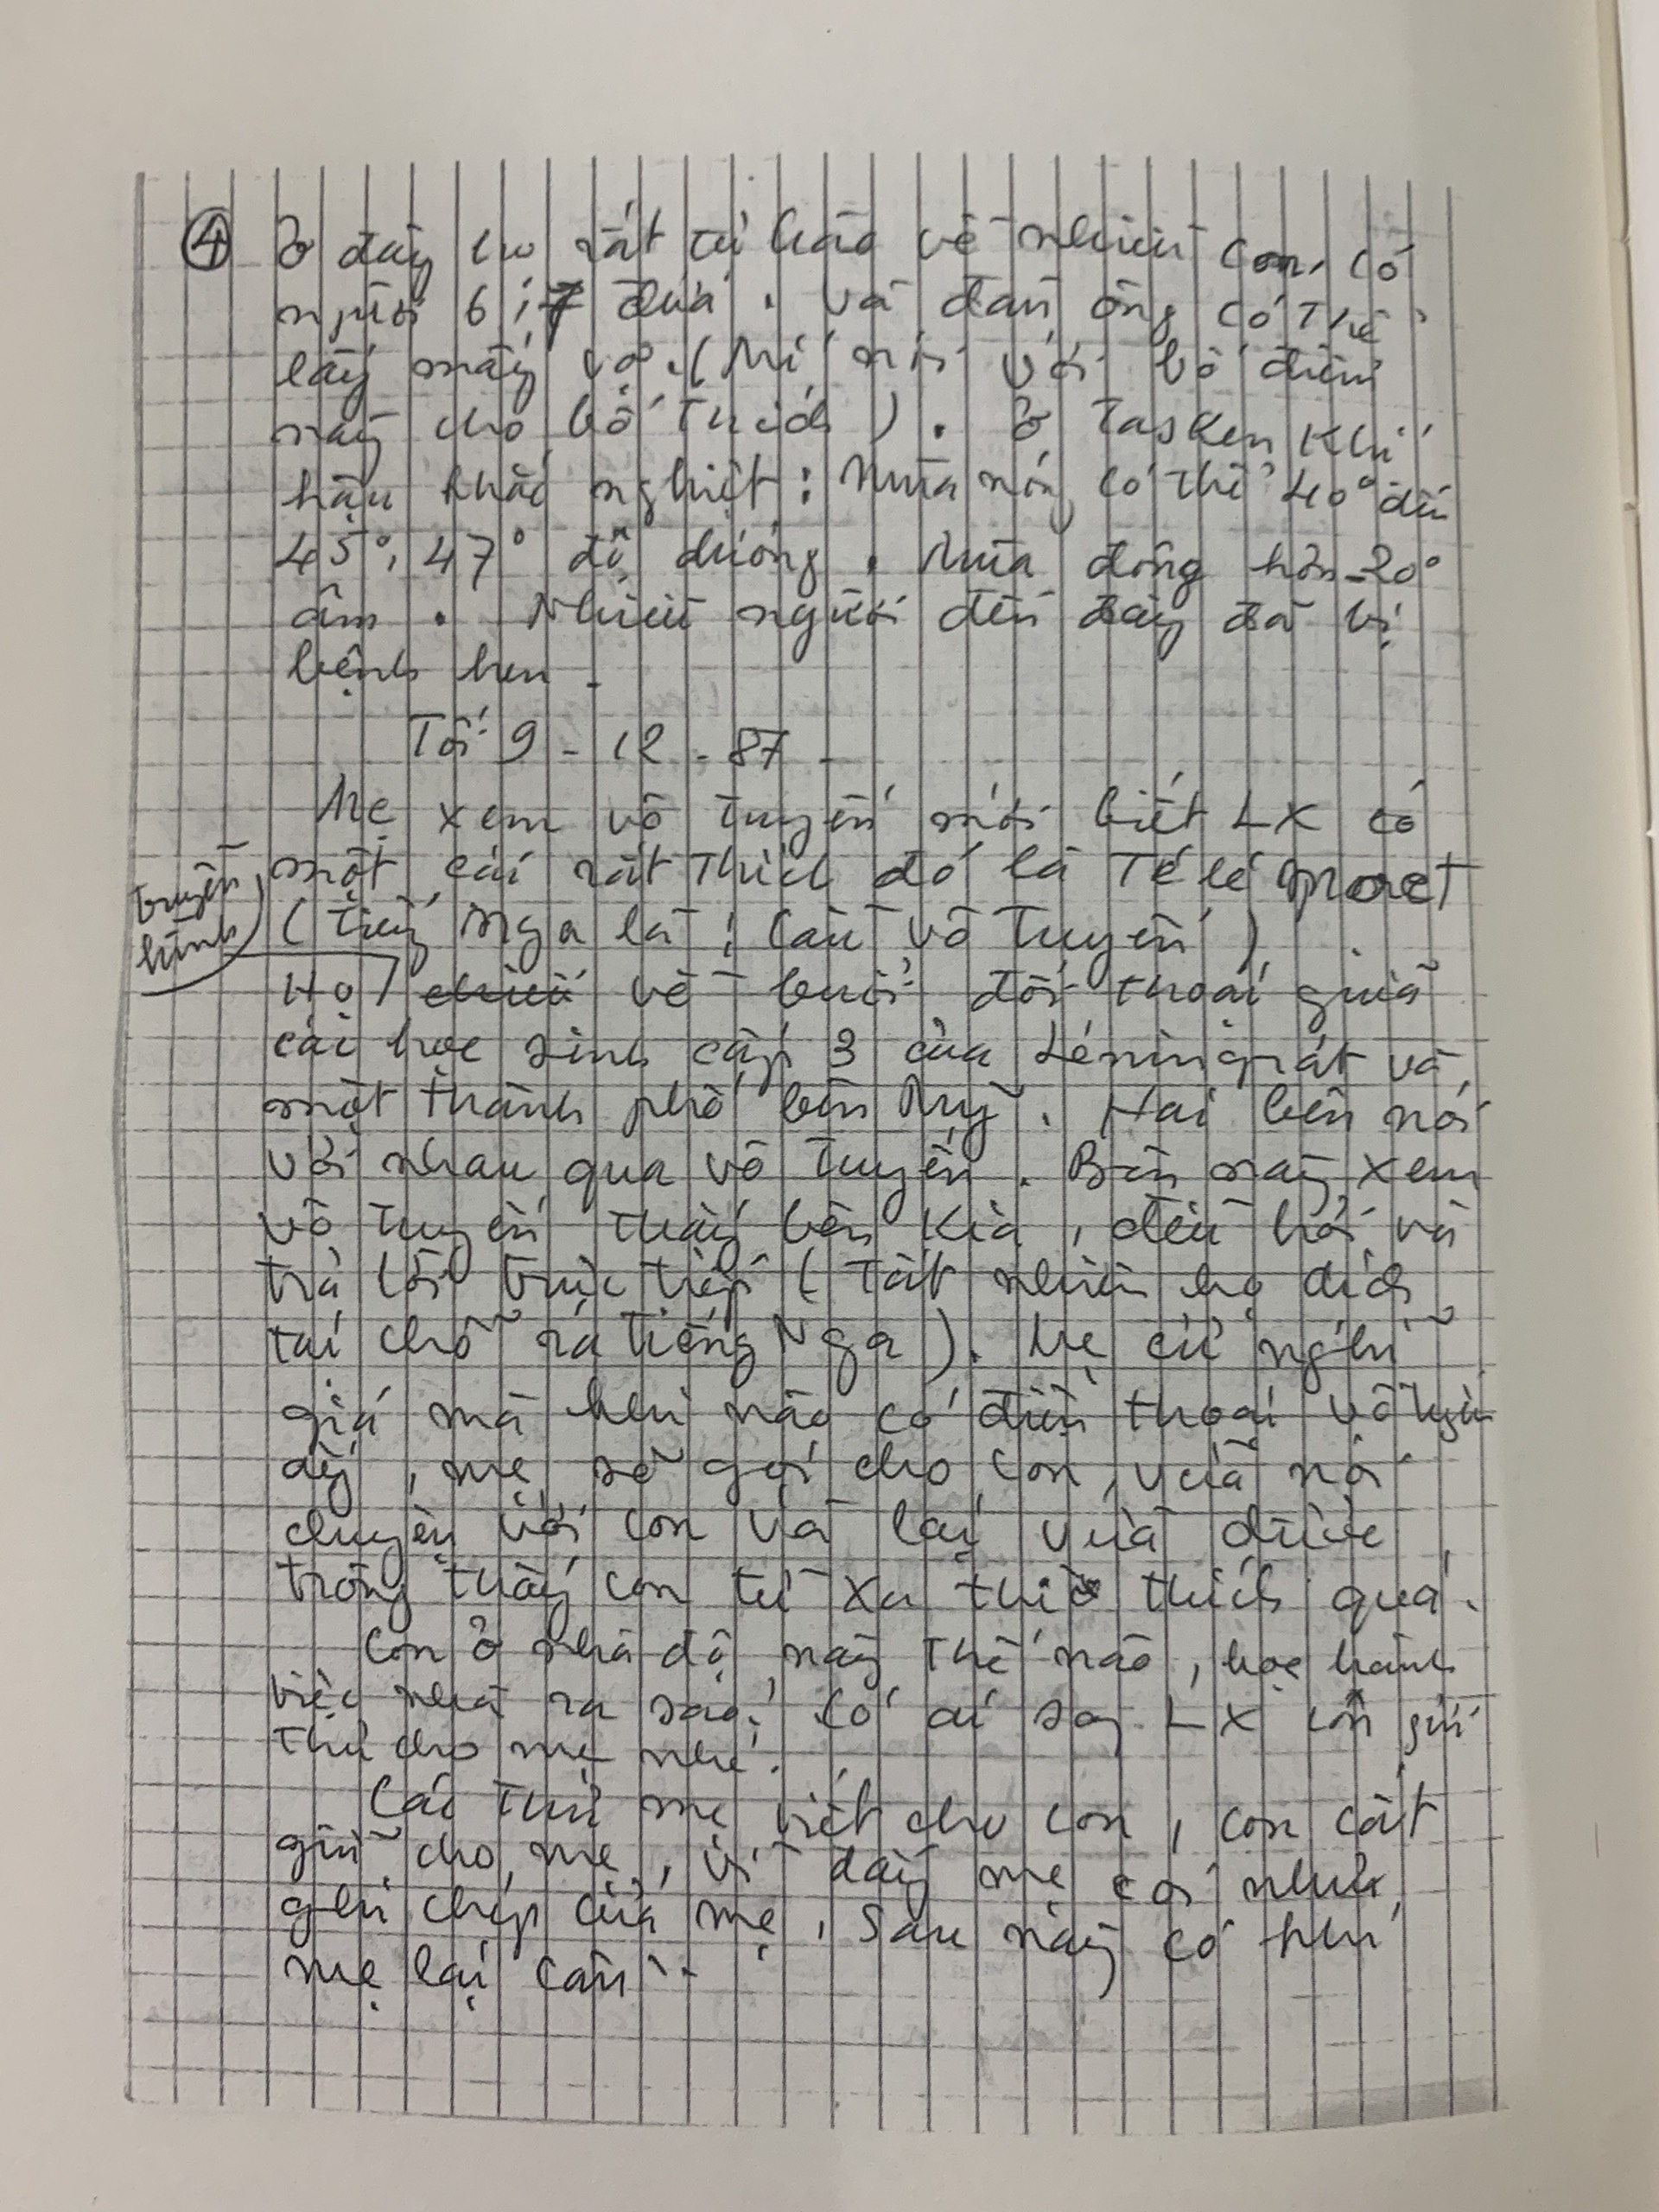 ④ Ở đây họ rất tự hào về nhiều con, có
người 6, 7 đứa. Và đàn ông có thể
lấy mấy vợ. (Mí nói với bố điểm
này cho bố thích). Ở Tasken khí
hậu khắc nghiệt: Mùa nóng có thể 40° đến
45°, 47° độ dương. Mùa đông hơn -20°
âm. Nhiều người đến đây đã bị
bệnh hen.
Tối 9-12-87-
Mẹ xem vô tuyến mới biết LX có
một cái rất thích đó là Télé
(tiếng Nga là: Cầu vô tuyến)
truyền
hình
Họ chiếu về buổi đối thoại giữa
các học sinh cấp 3 của Lêningrát và
một thành phố bên Mỹ. Hai bên nói
với nhau qua vô tuyến. Bên này xem
vô tuyến thấy bên kia, đều hỏi và
trả lời trực tiếp (tất nhiên họ dịch
tại chỗ ra tiếng Nga). Mẹ cứ nghĩ
giá mà khi nào có điện thoại vô tuyến
ấy, mẹ sẽ gọi cho con, vừa nói
chuyện với con và lại vừa được
trông thấy con từ xa thì thích quá.
Con ở nhà độ này thế nào, học hành
việc nhà ra sao? Có ai sang LX con gửi
thư cho mẹ nhé.
Các thư mẹ viết cho con, con cất
giữ cho mẹ, vì đây mẹ coi như
ghi chép của mẹ, sau này có khi
mẹ lại cần.-